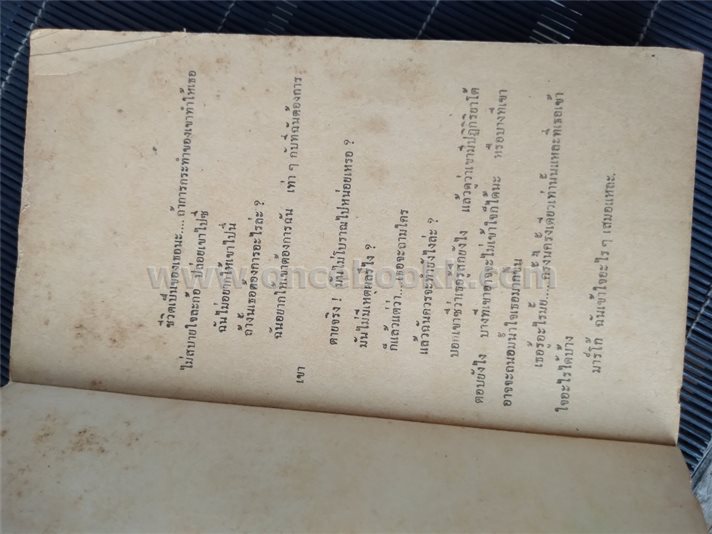 ชีวิตเป็นของเธอนะ.... ถ้าการกระทำของเขาทำให้เธอ
ไม่สบายใจละก้อ ปล่อยเขาไปซี
ฉันไม่อยากให้เขาไปนี่
ถ้างั้นเธอต้องการอะไรล่ะ ?
ฉันอยากให้เขาต้องการฉัน เท่า ๆ กับที่ฉันต้องการ
เขา
ตายจริง ! มันไม่โบราณไปหน่อยเหรอ ?
มันไม่มีเหตุผลรึไง ?
ก็แล้วแต่ว่า....เธอจะถามใคร
แล้วฉันควรจะทำยังไงล่ะ ?
บอกเขาซีว่าเธอรู้สึกยังไง แล้วดูว่าเขามีปฏิกิริยาโต้
ตอบยังไง บางทีเขาอาจจะไม่เข้าใจก็ได้นะ หรือบางทีเขา
อาจจะถนอมน้ำใจเธอมากขึ้น
เธอรู้อะไรมั้ย....บางครั้งเดี๋ยวเท่านั้นแหละที่เธอเข้า
ใจอะไรได้บ้าง
มาร์โก้ ฉันเข้าใจอะไร ๆ เสมอแหละ
www.oncebook.com